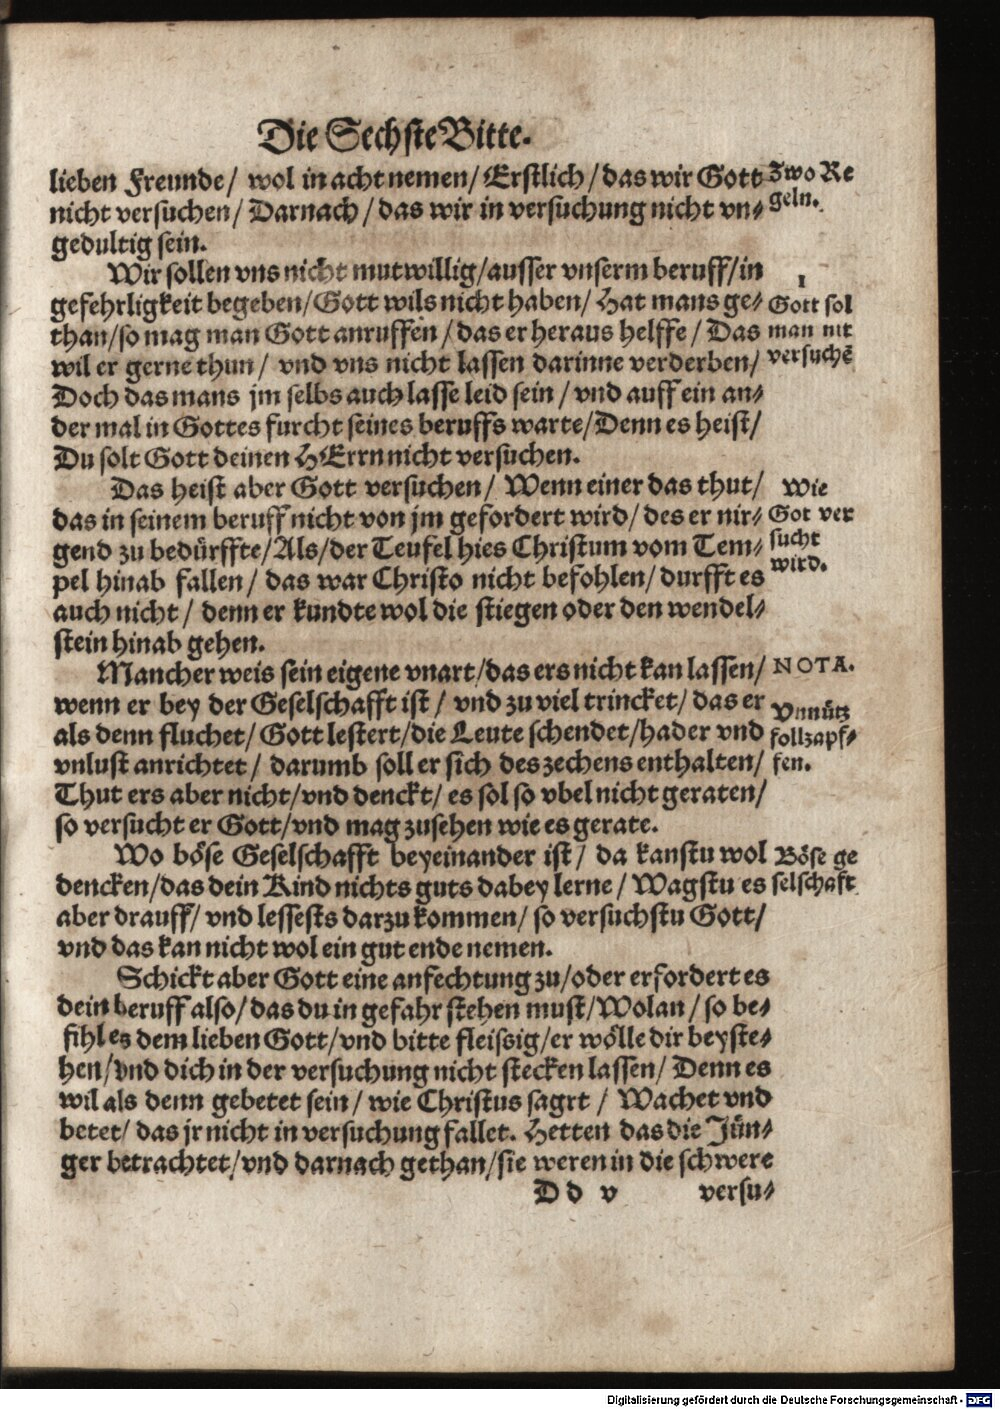 Die Sechste Bitte.
lieben Freunde/ wol in acht nemen/ Erstlich/ das wir Gott
nicht versuchen/ Darnach/ das wir in versuchung nicht vn⸗
gedultig sein.
Zwo Re
geln.
Wir sollen vns nicht mutwillig/ ausser vnserm beruff/ in
gefehrligkeit begeben/ Gott wils nicht haben/ Hat mans ge⸗
than/ so mag man Gott anruffen/ das er heraus helffe/ Das
wil er gerne thun/ vnd vns nicht lassen darinne verderben/
Doch das mans jm selbs auch lasse leid sein/ vnd auff ein an⸗
der mal in Gottes furcht seines beruffs warte/ Denn es heist/
Du solt Gott deinen HErrn nicht versuchen.
1
Gott sol
man nit
versuchẽ
Das heist aber Gott versuchen/ Wenn einer das thut/
das in seinem beruff nicht von jm gefordert wird/ des er nir⸗
gend zu bedürffte/ Als/ der Teufel hies Christum vom Tem⸗
pel hinab fallen/ das war Christo nicht befohlen/ durfft es
auch nicht/ denn er kundte wol die stiegen oder den wendel⸗
stein hinab gehen.
Wie
Got ver
sucht
wird.
Mancher weis sein eigene vnart/ das ers nicht kan lassen/
wenn er bey der Geselschafft ist/ vnd zu viel trincket/ das er
als denn fluchet/ Gott lestert/ die Leute schendet/ hader vnd
vnlust anrichtet/ darumb soll er sich des zechens enthalten/
Thut ers aber nicht/ vnd denckt/ es sol so vbel nicht geraten/
so versucht er Gott/ vnd mag zusehen wie es gerate.
NOTA.
Vnnütz
follzapf⸗
fen.
Wo böse Geselschafft beyeinander ist/ da kanstu wol
dencken/ das dein Kind nichts guts dabey lerne/ Wagstu es
aber drauff/ vnd lessests darzu kommen/ so versuchstu Gott/
vnd das kan nicht wol ein gut ende nemen.
Böse ge
selschaft
Schickt aber Gott eine anfechtung zu/ oder erfordert es
dein beruff also/ das du in gefahr stehen must/ Wolan/ so be⸗
fihl es dem lieben Gott/ vnd bitte fleissig/ er wölle dir beyste⸗
hen/ vnd dich in der versuchung nicht stecken lassen/ Denn es
wil als denn gebetet sein/ wie Christus sagrt/ Wachet vnd
betet/ das jr nicht in versuchung fallet. Hetten das die Jün⸗
ger betrachtet/ vnd darnach gethan/ sie weren in die schwere
D d v versu⸗
Digitalisierung gefördert durch die Deutsche Forschungsgemeinschaft - DFG